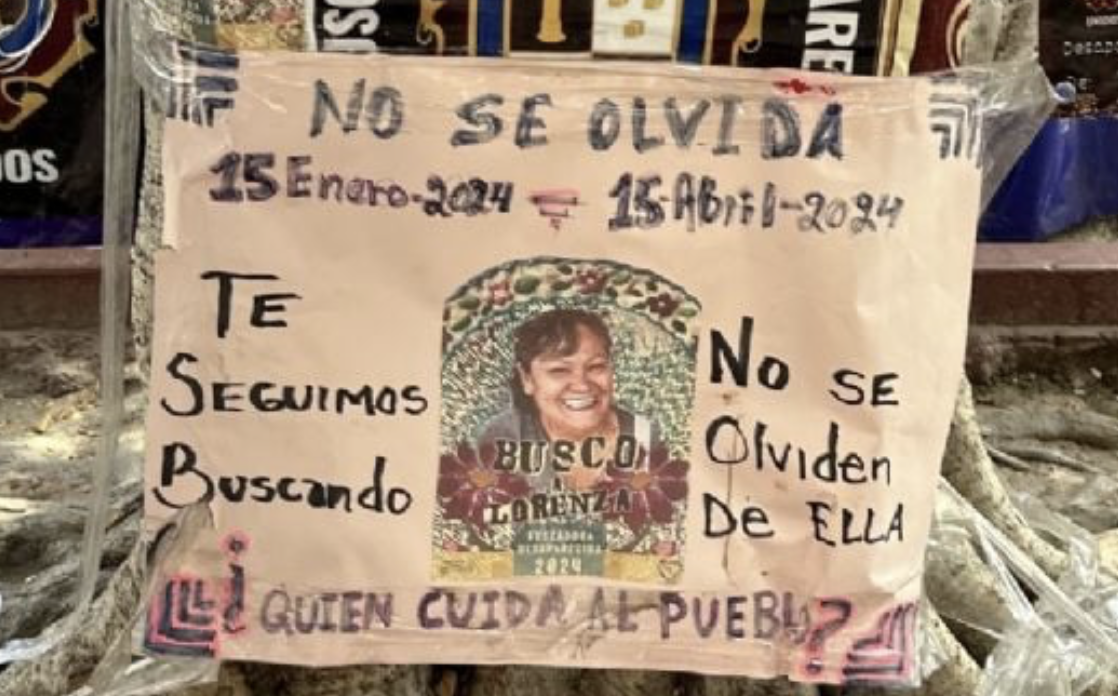 NO SE OLVIDA
15 Enero-2024 = 15-Abril-2024
TE
SEGUIMOS
Buscando
BUSCO
A
LORENZA
BUSCADORA
DESAPARECIDA
2024
No SE
Olviden
De ELLA
¿QUIEN CUIDA AL PUEBLO?
OS